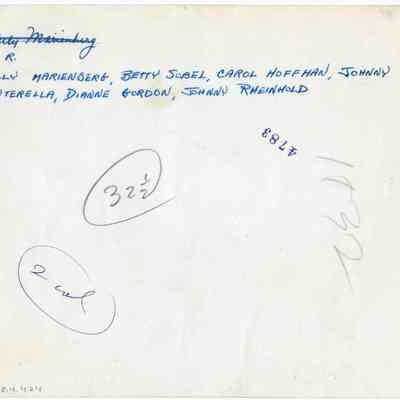 Marienberg
R.
LLY MARIENBERG, BETTY SOBEL, CAROL HOFFMAN, JOHNNY
TERELLA, DIANNE GORDON, JOHNNY RHEINHOLD
4783
32 1/2
2 col
.4.424